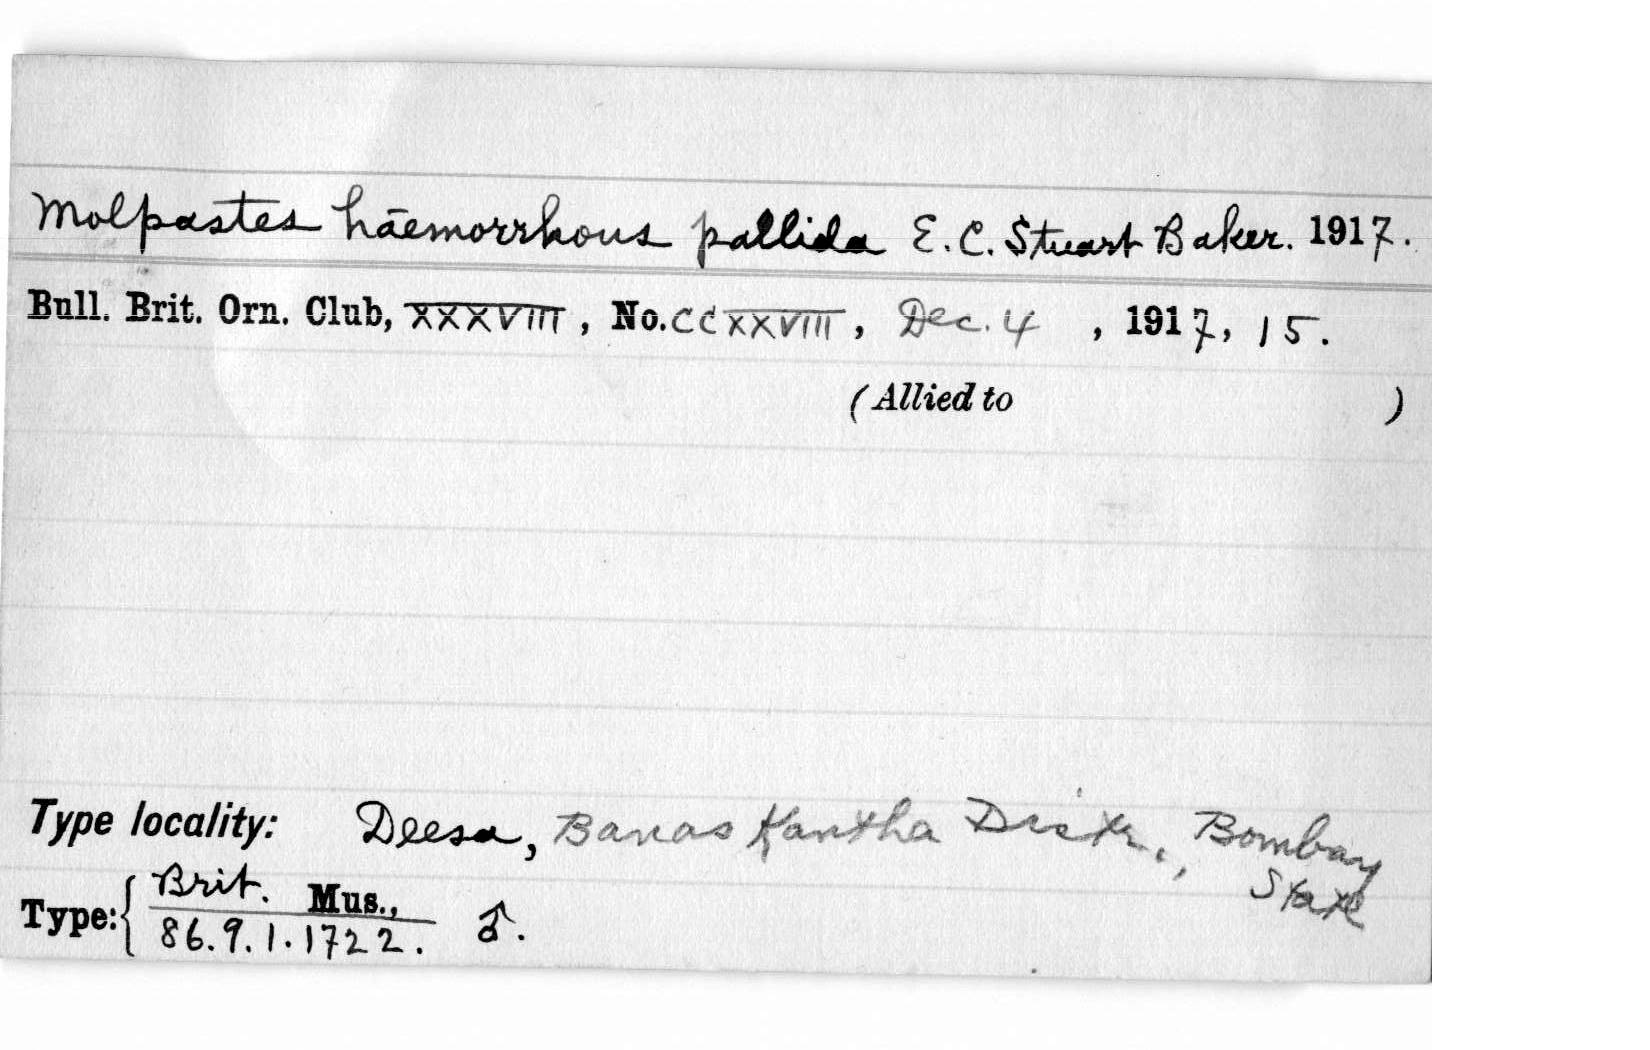 Molpastes haemorrhous pallida E. C. Stuart Baker. 1917.
Bull. Brit. Orn. Club, XXXVIII, No. CCXXVIII, Dec. 4, 1917, 15.
(Allied to )
Type locality: Deesa, Banas Kantha Distr., Bombay
State
Type: { Brit. Mus.,
86.9.1.1722. ♂.